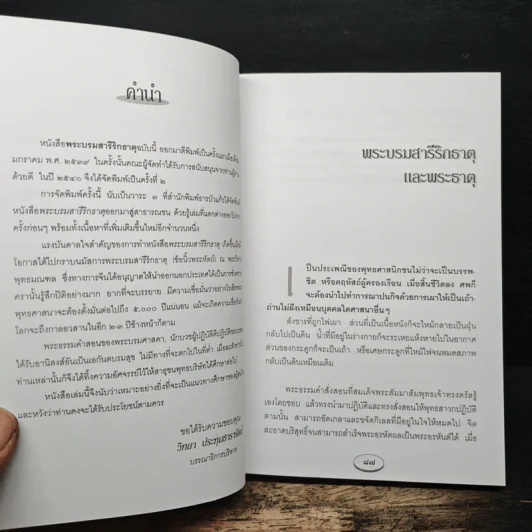 คำนำ
หนังสือพระบรมสารีริกธาตุฉบับนี้ ออกมาตีพิมพ์เป็นครั้งแรกเมื่อเดือน
มกราคม พ.ศ. ๒๕๓๙ ในครั้งนั้นคณะผู้จัดทำได้รับการสนับสนุนจากท่านผู้อ่าน
ด้วยดี ในปี ๒๕๔๐ จึงได้จัดพิมพ์เป็นครั้งที่ ๒
การจัดพิมพ์ครั้งนี้ นับเป็นวาระ ๓ ที่สำนักพิมพ์ธารบัวแก้วได้จัดพิมพ์
หนังสือพระบรมสารีริกธาตุออกมาสู่สาธารณชน ด้วยรูปเล่มที่แตกต่างออกไปจาก
ครั้งก่อนๆ พร้อมทั้งเนื้อหาที่เพิ่มเติมขึ้นใหม่อีกจำนวนหนึ่ง
แรงบันดาลใจสำคัญของการทำหนังสือพระบรมสารีริกธาตุ เกิดขึ้นเมื่อ
โอกาสได้ไปกราบนมัสการพระบรมสารีริกธาตุ (ข้อนิ้วพระหัตถ์) ณ
พุทธมณฑล ซึ่งทางการจีนได้อนุญาตให้นำออกนอกประเทศได้เป็นการชั่ว
ครานั้นรู้สึกปิติอย่างมาก ยากที่จะบรรยาย มีความเชื่อมั่นว่าอย่างไร
พุทธศาสนาจะต้องตั้งมั่นต่อไปถึง ๕,๐๐๐ ปีแน่นอน แม้จะเกิดความเชื่อ
โลกจะถึงกาลอวสานในอีก ๒-๓ ปีข้างหน้าก็ตาม
พระธรรมคำสอนของพระบรมศาสดา, นักบวชผู้ปฏิบัติดีปฏิบัติชอบ
ได้รับอานิสงส์อันเป็นเอกกันตบรมสุข ไม่มีทางที่จะตกไปในที่ต่ำ เมื่อ
ท่านเหล่านั้นก็จึงได้ทิ้งความอัศจรรย์ไว้ให้สาธุชนพุทธบริษัทได้ศึกษาต่อไป
หนังสือเล่มนี้จึงนับว่าเหมาะอย่างยิ่งที่จะเป็นแนวทางศึกษาของผู้สนใจ
และหวังว่าท่านคงจะได้รับประโยชน์ตามควร
ขอได้รับความขอบคุณ
วิทยา
บรรณาธิการบริหาร
พระบรมสารีริกธาตุ
และพระธาตุ
เป็นประเพณีของพุทธศาสนิกชนไม่ว่าจะเป็นบรรพ-
ชิต หรือคฤหัสถ์ผู้ครองเรือน เมื่อสิ้นชีวิตลง ศพก็
จะต้องนำไปทำการฌาปนกิจด้วยการเผาให้เป็นเถ้า-
ถ่านไม่ฝังเหมือนบุคคลใดศาสนาอื่นๆ
สังขารที่ถูกไฟเผา ส่วนที่เป็นเนื้อหนังก็จะไหม้กลายเป็นฝุ่น
กลับไปเป็นดิน น้ำที่มีอยู่ในร่างกายก็จะระเหยแห้งหายไปในอากาศ
ส่วนของกระดูกก็จะเป็นเถ้า หรือเศษกระดูกที่ไหม้ไฟจนหมดสภาพ
กลับเป็นดินเหมือนเดิม
พระธรรมคำสั่งสอนที่สมเด็จพระสัมมาสัมพุทธเจ้าทรงตรัสรู้
เองโดยชอบ แล้วทรงนำมาปฏิบัติและทรงสั่งสอนให้พุทธสาวกปฏิบัติ
ตามนั้น สามารถขัดเกลาและขจัดกิเลสที่มีอยู่ในใจให้หมดไป จิต
สะอาดบริสุทธิ์จนสามารถสำเร็จพระอรหัตผลเป็นพระอรหันต์ได้ เมื่อ
๘๗